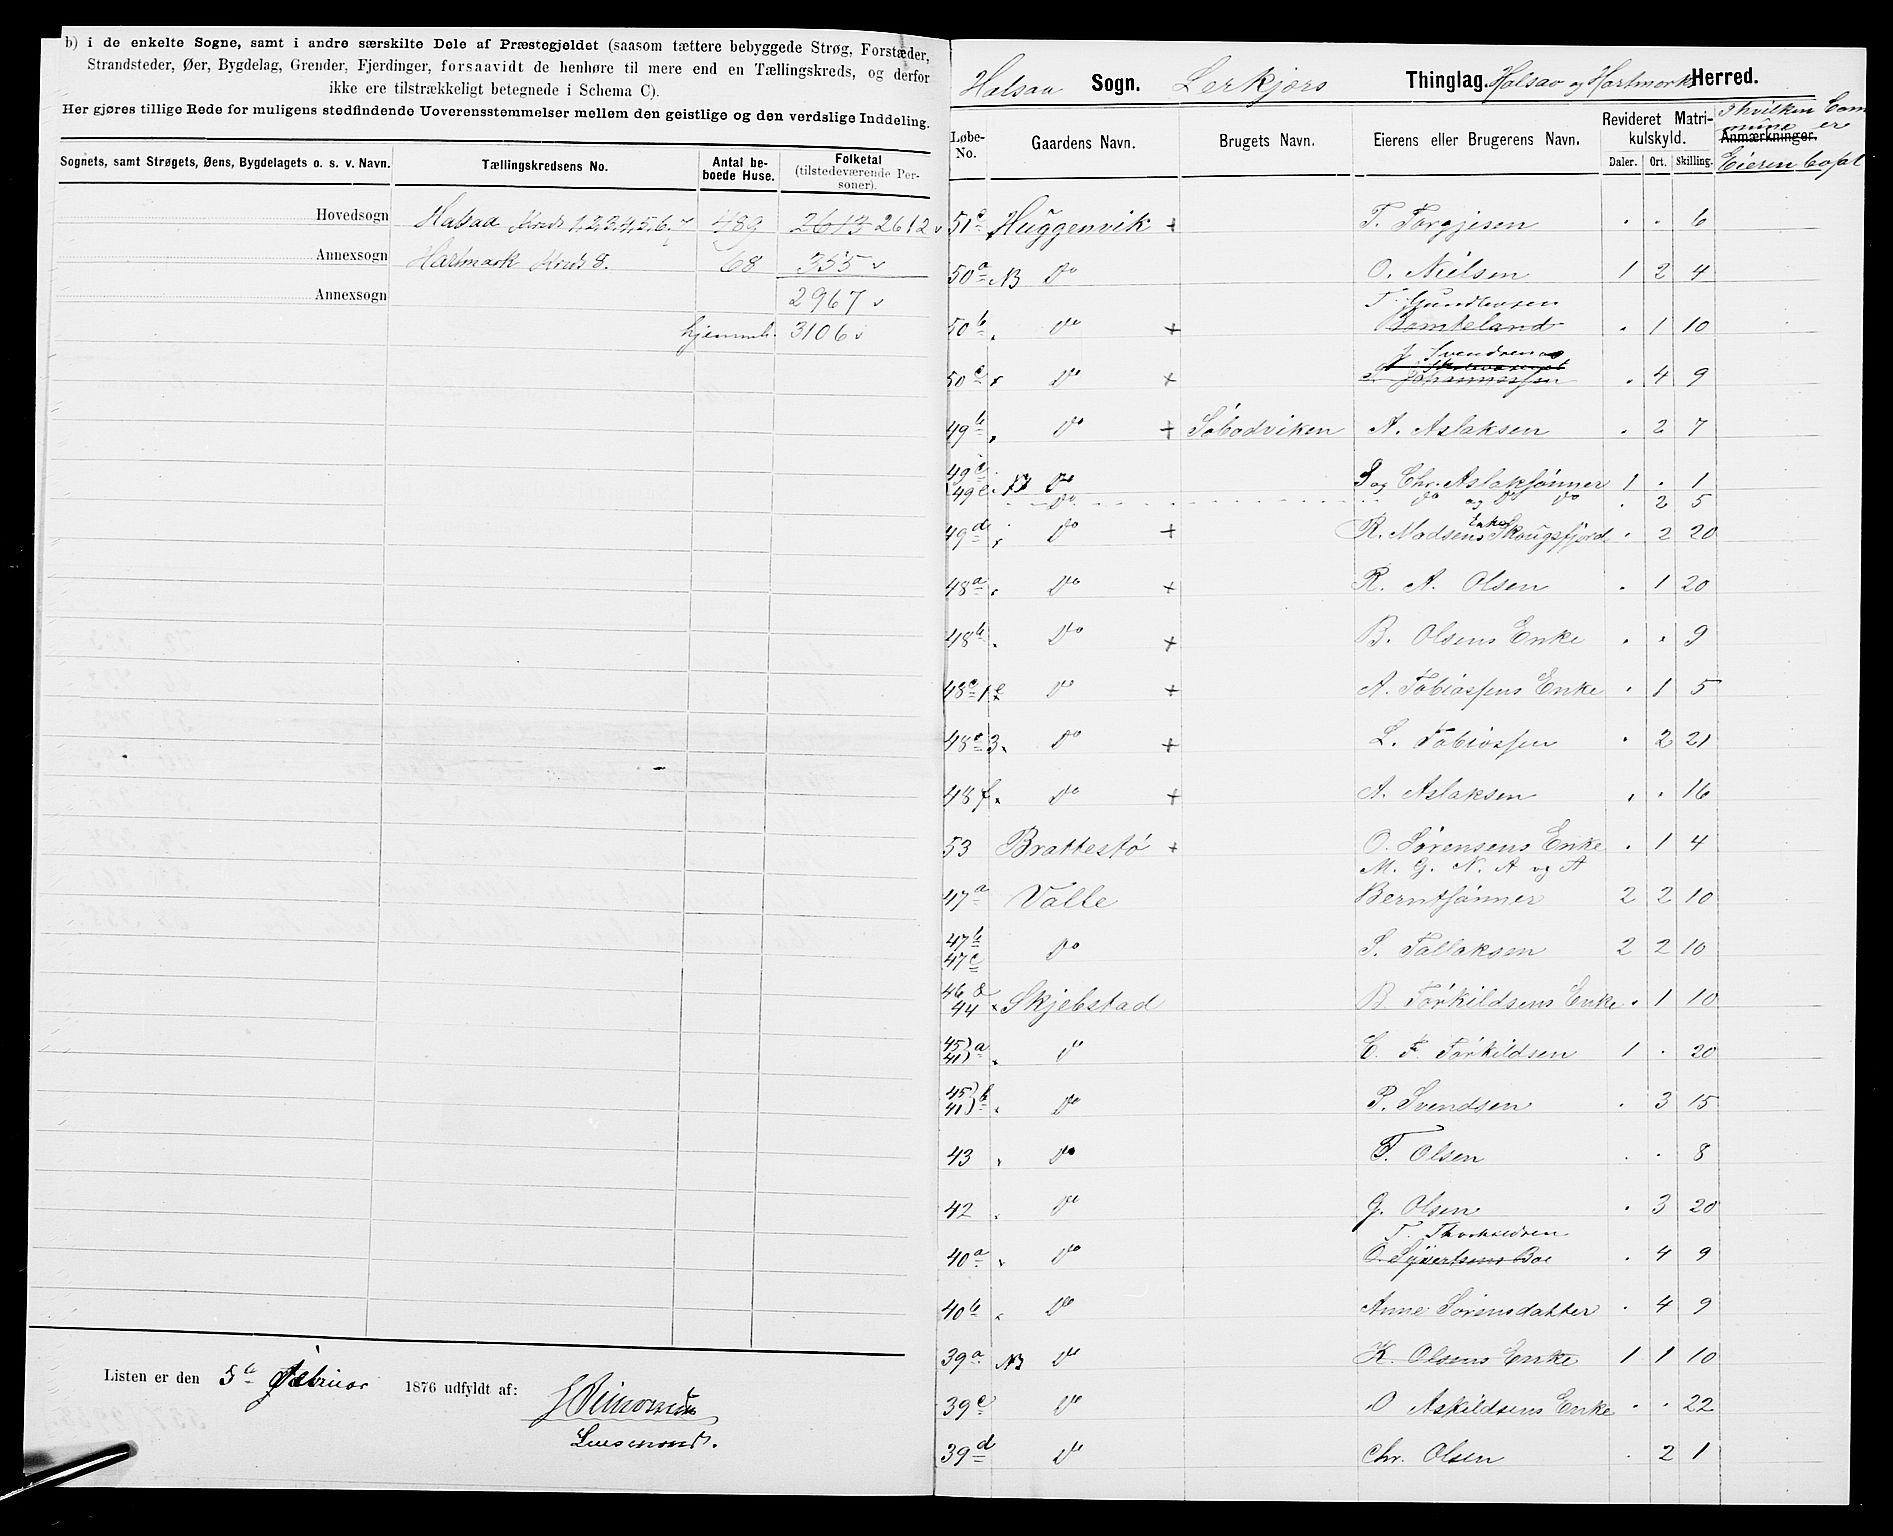 b) i de enkelte Sogne, samt i andre særskilte Dele af Præstegjeldet (saasom tættere bebyggede Strøg, Forstæder,
Strandsteder, Øer, Bygdelag, Grender, Fjerdinger, forsaavidt de henhøre til mere end en Tællingskreds, og derfor
ikke ere tilstrækkeligt betegnede i Schema C).
Her gjøres tillige Rede for muligens stedfindende Uoverensstemmelser mellem den geistlige og den verdslige Inddeling.
Sognets, samt Strøgets, Øens, Bygdelagets o. s. v. Navn. Tællingskredsens No. Antal beboede Huse. Folketal (tilstedeværende Personer).
Hovedsogn Halsaa Kreds 1,2,3,4,5,6,7 489 2613 2612 v
Annexsogn Hartmark Kreds 8. 68 355 v
Annexsogn 2967 v
hjemmeh. 3106 v
Listen er den 5te Februar 1876 udfyldt af:
Lensmand.
Halsaa Sogn. Lerkjers Thinglag. Halsaa og Hartmarks Herred.
Løbe-No. Gaardens Navn. Brugets Navn. Eierens eller Brugerens Navn. Revideret Matrikulskyld. Daler. Ort. Skilling. Anmærkninger. I hvilken Commune er Eieren bosat
51c Huggenvik + T. Torgjesen . . 6
50a NB Do O. Nielsen 1 2 4
T. Gundersen
50b Do + Bomteland . 1 10
J. Svendsen
50c Do + Johannessen . 4 9
49b Do + Søbodviken A. Aslaksen . 2 7
49c Do S og Chr. Aslaksønner 1 . 1
49e Do Do og Do Do . 2 5
49d Do + R. Madsens Enke Skougsfjord . 2 20
48a Do + R. A. Olsen . 1 20
48b Do + B. Olsens Enke . . 9
48c 1 Do + A. Tobiassens Enke . 1 5
48c 3 Do + L. Tobiassen . 2 21
48f Do + A. Aslaksen . . 16
53 Brattestø + O. Sørensens Enke . 1 4
M. G. N. A og A
47a Valle Berntsønner 2 2 10
47b 47c Do S. Tallaksen 2 2 10
46 & 44 Skjebstad B Torkildsens Enke . 1 10
45) 41) a Do E. T. Torkildsen 1 . 20
45) 41) b Do P. Svendsen . 3 15
43 Do T. Olsen . . 8
42 Do G. Olsen . 3 20
T. Thorkildsen
40a Do O. Syvertsens Boe . 4 9
40b Do Anne Sørensdatter . 4 9
39a NB Do K. Olsens Enke 1 1 10
39c Do O Askildsens Enke . . 22
39d Do Chr. Olsen . 2 1